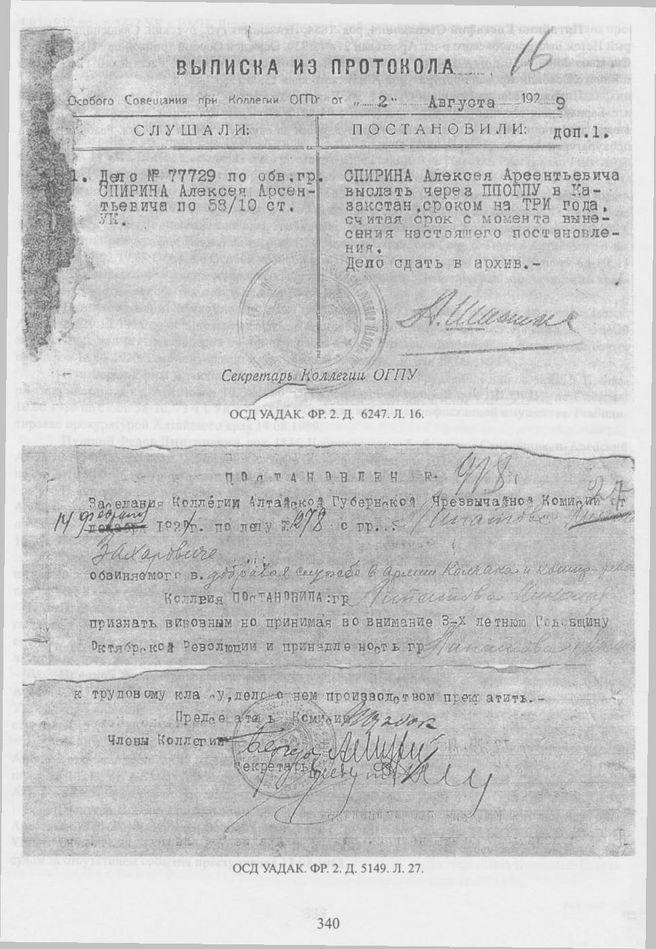 16
ВЫПИСКА ИЗ ПРОТОКОЛА
Особого Совещания при Коллегии ОГПУ от „ 2 " Августа 1929
СЛУШАЛИ: ПОСТАНОВИЛИ: доп.1.
1. Дело № 77729 по обв.гр.
СПИРИНА Алексея Арсен-
тьевича по 58/10 ст.
УК.
СПИРИНА Алексея Арсентьевича
выслать через ППОГПУ в Ка-
закстан,сроком на ТРИ года,
считая срок с момента выне-
сения настоящего постановле-
ния.
Дело сдать в архив.-
Секретарь Коллегии ОГПУ
ОСД УАДАК. ФР. 2. Д. 6247. Л. 16.
ПОСТАНОВЛЕНИЕ. 918
Заседания Коллегии Алтайской Губернской Чрезвычайной Комисии
14 февраля 192 г. по делу № 278 с гр.
Захаровиче
обвиняемого в добровол службе в армии Колчака и
Коллегия ПОСТАНОВИЛА:гр
признать виновным но принимая во внимание 3-х летнюю Годовщину
Октябрской Революции и принадле ность гр
к трудовому кла су,дело о нем производством прекратить.-
Предсе ате ь Комисии
Члены Коллегии
Секретарь
ОСД УАДАК. ФР. 2. Д. 5149. Л. 27.
340